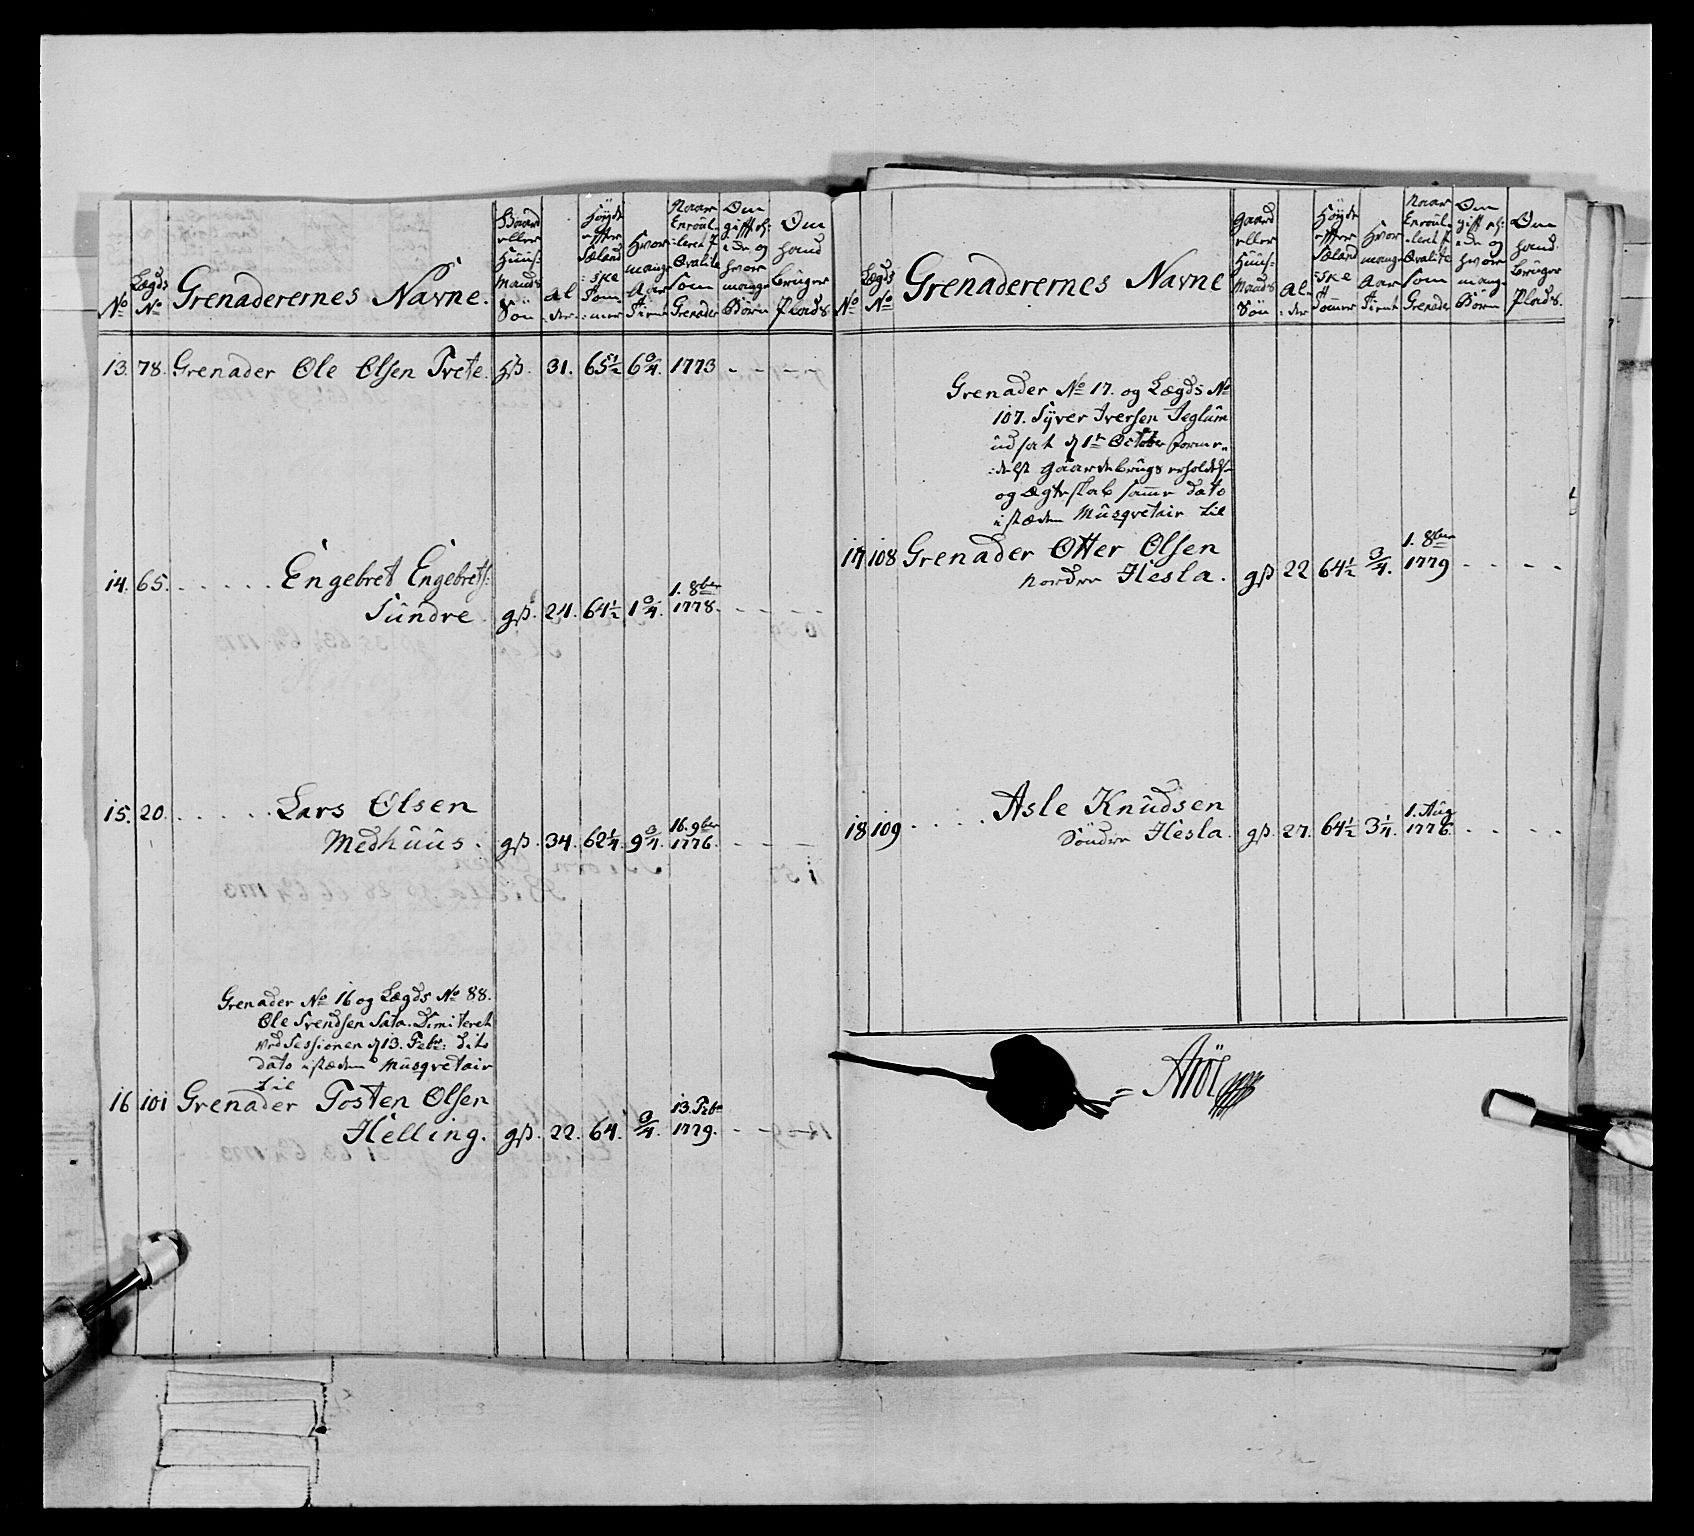 No
Lægds No
Grenaderernes Navne.
Gaard eller Huus- Mands Søn
Al- der.
Höyde efter Sælands- ske Tom- mer
Hvor mange Aar Tient
Naar Enroul- leret i Qvalite som Grenader
Om gifft eller ei og hvor mange Börn
Om hand bruger Plads.
13. 78. Grenader Ole Olsen Trete. hß. 31. 65½ 6¾. 1773 - - -
14. 65. . . . . . Engebret Engebrets:
Sundre. gß. 24. 64½ 1¾. 1. 8ber 1778. - - - -
15. 20. . . . . . Lars Olsen
Medhuus. gß. 34. 62¼ 9¾. 16. 9ber 1776. - - -
Grenader No 16 og Lægds No 88.
Ole Svendsen Sata. Dimiteret
ved Sessionen d 13. Febr: dito
dato istæden Musqvetair
til
16 101 Grenader Tosten Olsen
Helling. gß. 22. 64. ¾. 13. Febr 1779. - - -
No
Lægds No
Grenaderernes Navne
Gaard eller Huus- Mands Søn
Al- der
Höyde efter Sælands- ske Tommer
Hvor mange Aar Tient
Naar Enroul- leret i Qvalite som Grenader
Om gifft eller ei og hvor mange Börn
Om hand bruger Plads.
Grenader No 17. og Lægds No
107. Syver Iversen Jeglum
udsat d 1te October formee-
delst gaardebrugs erholdelse
og Ægteskab samme dato
istæden Musqvetair til
17 108 Grenader Otter Olsen
nordre Hesla. gß 22 64½ ¾. 1. 8ber 1779 - - - -
18 109 . . . . . Asle Knudsen
Söndre Hesla. gß. 27. 64½ 3¼. 1. Aug 1776. - - - -